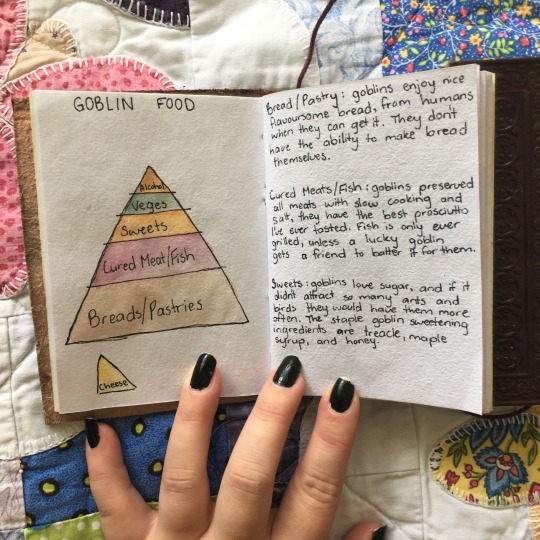 GOBLIN FOOD
Alcohol
Veges
Sweets
Cured Meat/Fish
Breads/Pastries
Cheese
Bread/Pastry: goblins enjoy nice
flavoursome bread, from humans
when they can get it. They don't
have the ability to make bread
themselves.
Cured Meats/Fish: goblins preserved
all meats with slow cooking and
salt, they have the best prosciutto
I've ever tasted. Fish is only ever
grilled, unless a lucky goblin
gets a friend to batter it for them.
Sweets: goblins love sugar, and if it
didn't attract so many ants and
birds they would have them more
often. The staple goblin sweetening
ingredients are treacle, maple
syrup, and honey.